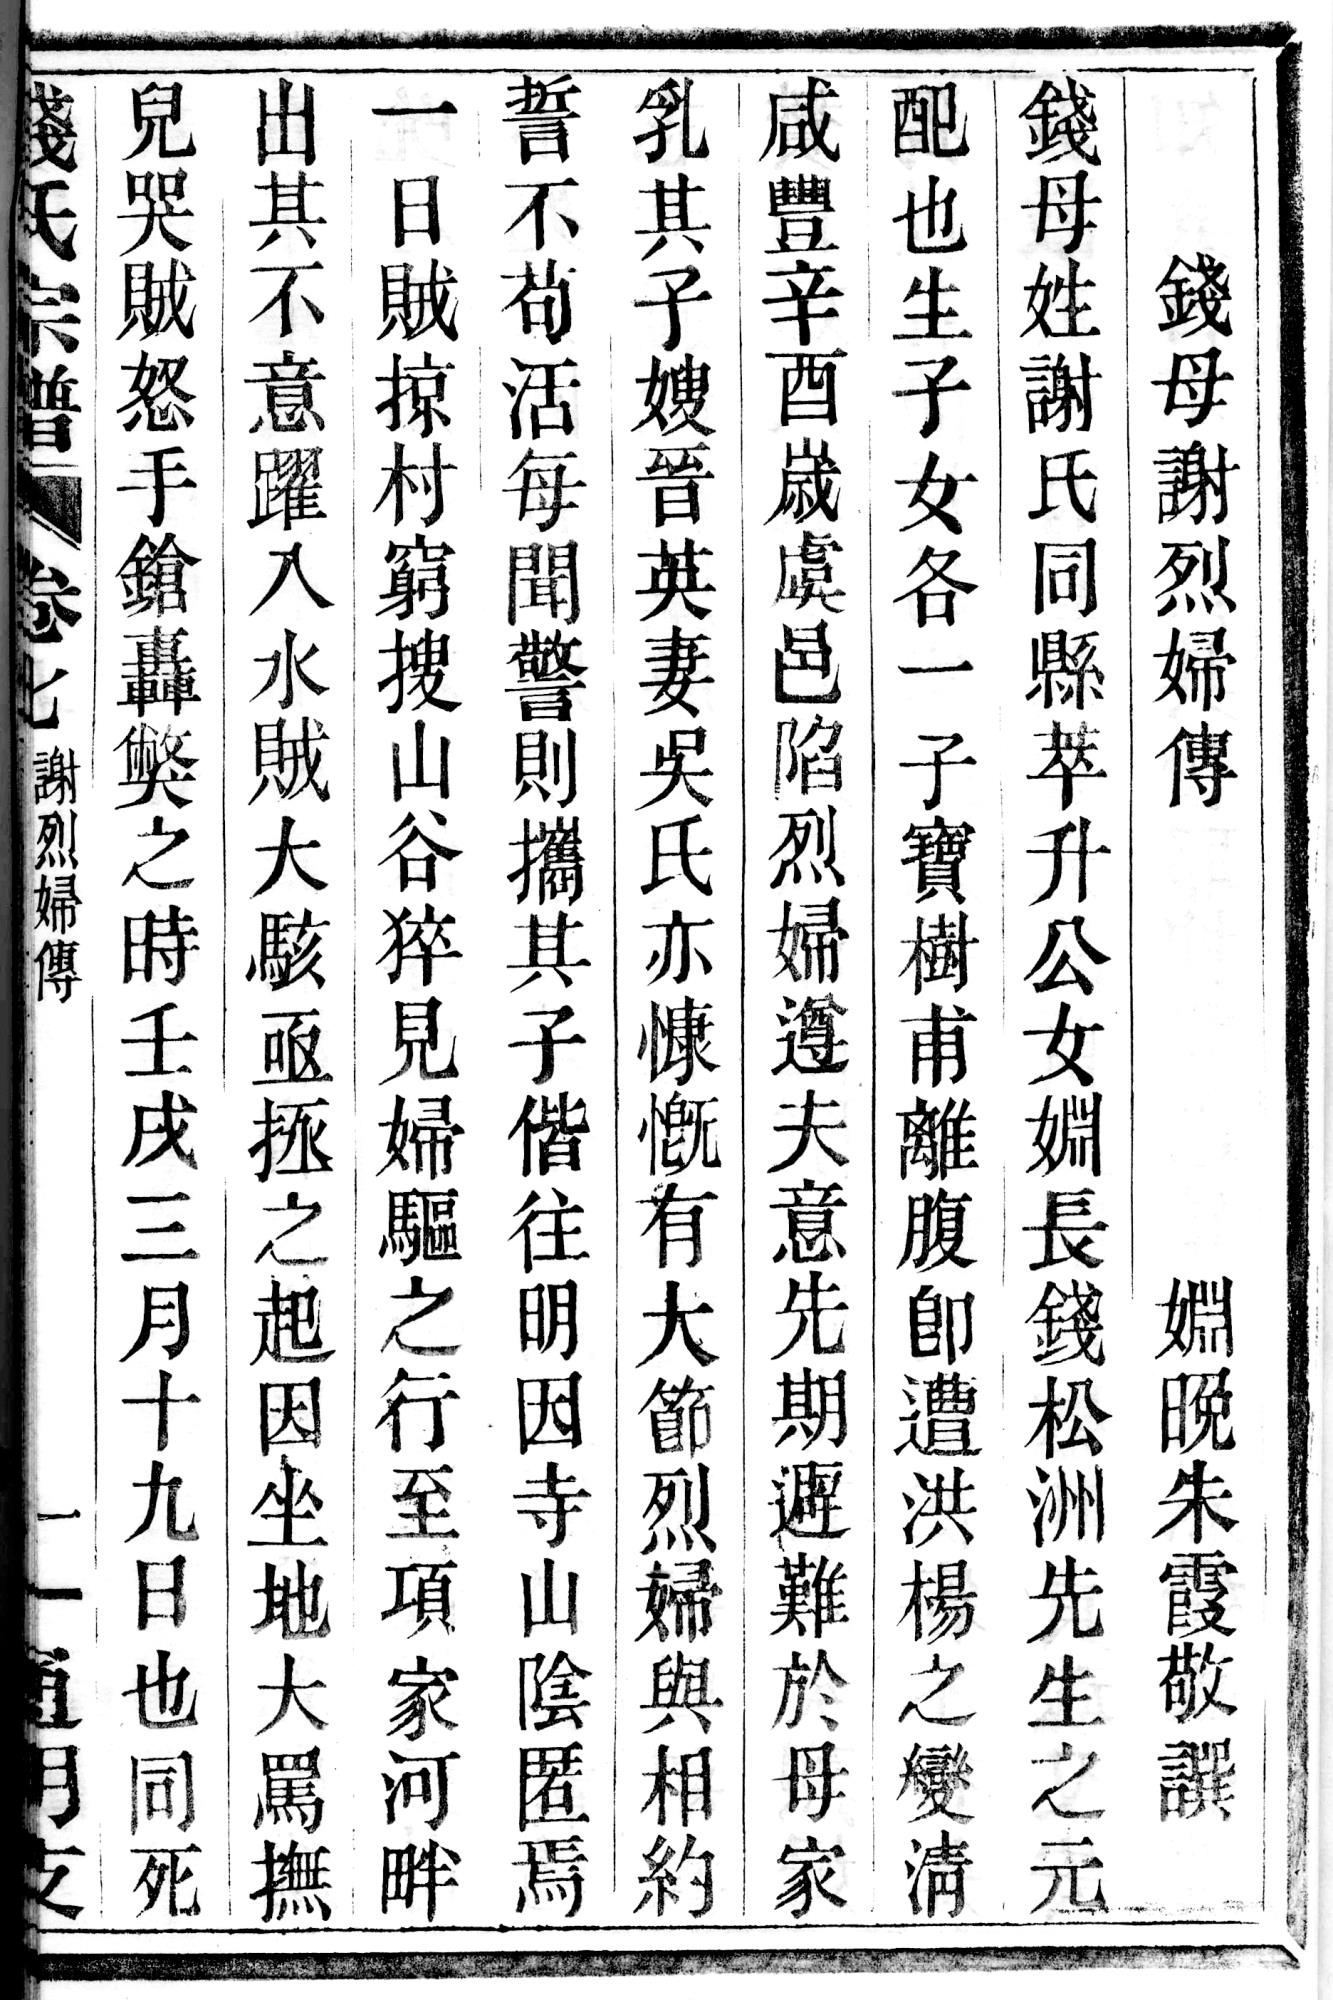 錢母謝烈婦傳 婣晩朱霞敬譔
錢母姓謝氏同縣萃升公女婣長錢松洲先生之元
配也生子女各一子寶樹甫離腹卽遭洪楊之變淸
咸豐辛酉嵗虞邑陷烈婦遵夫意先期避難於母家
乳其子嫂晉英妻吳氏亦慷慨有大節烈婦與相約
誓不苟活每聞警則攜其子偕往明因寺山陰匿焉
一日賊掠村窮搜山谷猝見婦驅之行至項家河畔
出其不意躍入水賊大駭亟拯之起因坐地大罵撫
兒哭賊怒手鎗轟斃之時壬戌三月十九日也同死
錢氏宗譜 卷七 謝烈婦傳 十一 通明支